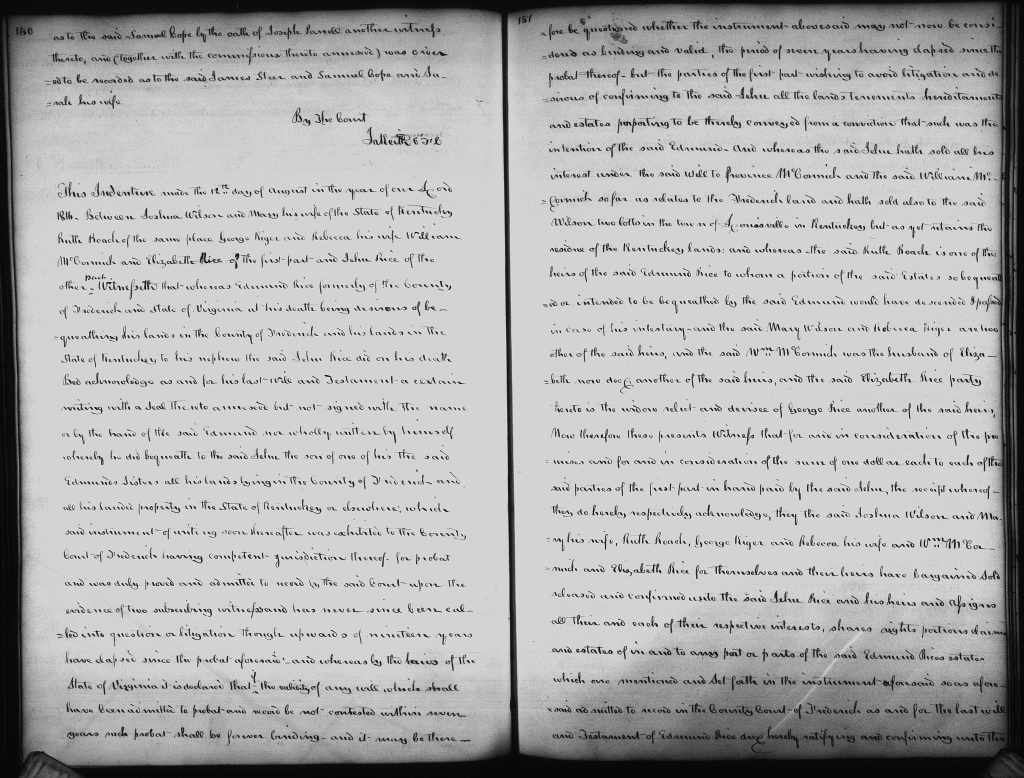 150
as to the said Samuel Cope by the oath of Joseph Lamd another witness
thereto, and (together with the commissions thereto annexed) was order
=ed to be recorded as to the said James Steer and Samuel Cope and Sa-
=rah his wife
By The Court
This Indenture made the 12th day of August in the year of our Lord
Between Joshua Wilson and Mary his wife of the State of Kentucky
Ruth Roach of the same place George Kiger and Rebecca his wife William
McCormick and Elizabeth Rice of the first part and John Rice of the
other part Witnesseth that whereas Edmund Rice formerly of the County
of Frederick and State of Virginia at his death being desirous of be-
=queathing his lands in the County of Frederick and his lands in the
State of Kentucky to his nephew the said John Rice did on his death
Bed acknowledge as and for his last will and Testament a certain
writing with a seal thereto annexed but not signed with the name
or by the hand of the said Edmund nor wholly written by himself
whereby he did bequeath to the said John the son of one of his the said
Edmunds Sisters all his lands lying in the County of Frederick and
all his landed property in the State of Kentucky or elsewhere, which
said instrument of writing soon thereafter was exhibited to the County
Court of Frederick having competent jurisdiction thereof for probat
and was duly proved and admitted to record by the said Court upon the
evidence of two subscribing witnesses and has never since been cal-
=led into question or litigation though upwards of nineteen years
have elapsed since the probat aforesaid - and whereas by the laws of the
State of Virginia it is declared that if the validity of any will which shall
have been admitted to probat and record be not contested within seven
years such probat shall be forever binding - and it may be there-
151
=fore be questiond whether the instrument abovesaid may not now be consi-
=dered as binding and valid, the period of seven years having elapsed since the
probat thereof - but the parties of the first part wishing to avoid litigation and de-
=sirous of confirming to the said John all the lands tenements hereditaments
and estates purporting to be thereby conveyed from a conviction that such was the
intention of the said Edmund - And whereas the said John hath sold all his
interest under the said will to Province McCormick and the said William Mc-
=Cormick so far as relates to the Frederick land and hath sold also to the said
Wilson two lotts in the town of Louisville in Kentuckey but as yet retains the
residue of the Kentuckey lands: and whereas the said Ruth Roach is one of the
heirs of the said Edmund Rice to whom a portion of the said Estates so bequeath
=ed or intended to be bequeathed by the said Edmund would have descended
in case of his intestacy - and the said Mary Wilson and Rebecca Kiger are two
other of the said heirs, and the said Wm McCormick was the husband of Eliza-
=beth now decd another of the said heirs, and the said Elizabeth Rice party
hereto is the widow relict and devisee of George Rice another of the said heirs,
Now therefore these presents Witness that for and in consideration of the pre
=mises and for and in consideration of the sum of one dollar each to each of the
said parties of the first part in hand paid by the said John, the receipt whereof
they do hereby respectively acknowledge, they the said Joshua Wilson and Ma-
=ry his wife, Ruth Roach, George Kiger and Rebecca his wife and Wm McCor-
=mick and Elizabeth Rice for themselves and their heirs have bargained sold
released and confirmed unto the said John Rice and his heirs and Assigns
all their and each of their respective interests, shares rights portions claims
and estates of in and to any part or parts of the said Edmund Rices estates
which are mentioned and set forth in the instrument aforesaid so as afore-
=said admitted to record in the County Court of Frederick as and for the last will
and Testament of Edmund Rice decd hereby ratifying and confirming unto the